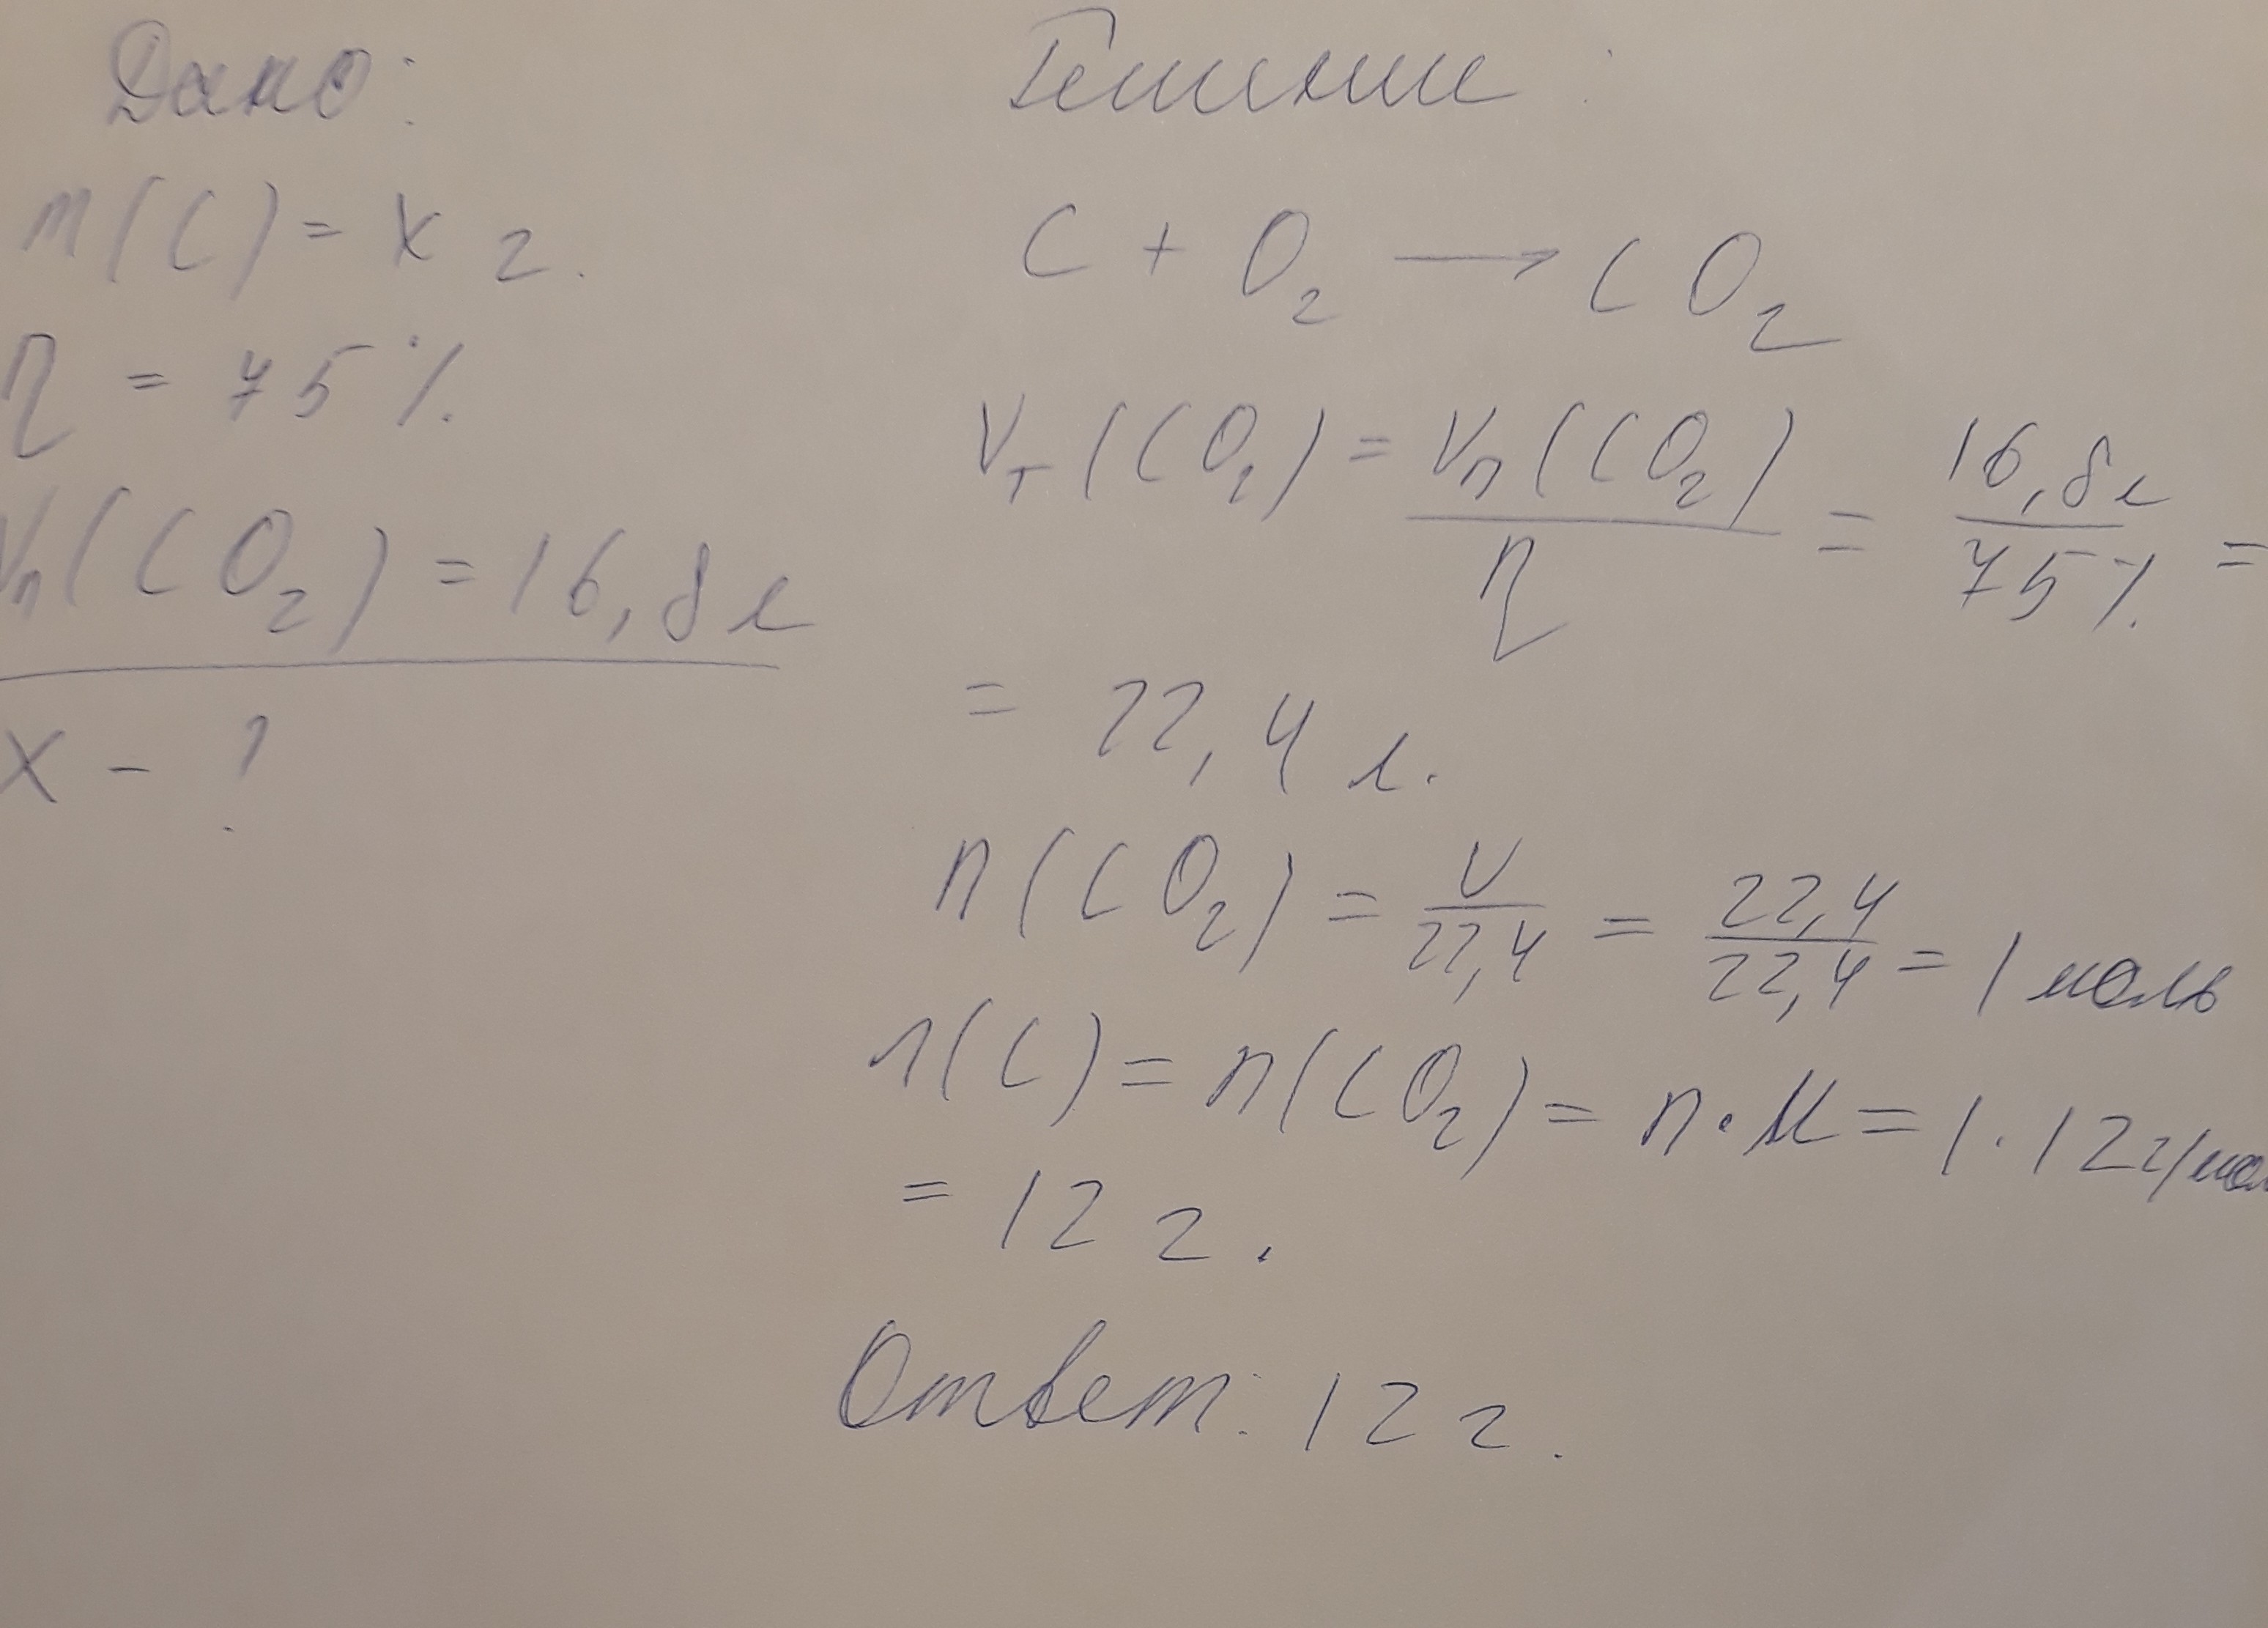 Дано:
m(C) = x г.
η = 75%.
Vп(CO₂) = 16,8 л
x - ?
Решение:
C + O₂ → CO₂
Vт(CO₂) = Vп(CO₂) / η = 16,8 л / 75% =
= 22,4 л.
n(CO₂) = V / 22,4 = 22,4 / 22,4 = 1 моль
n(C) = n(CO₂) = n · M = 1 · 12 г/мол
= 12 г.
Ответ: 12 г.